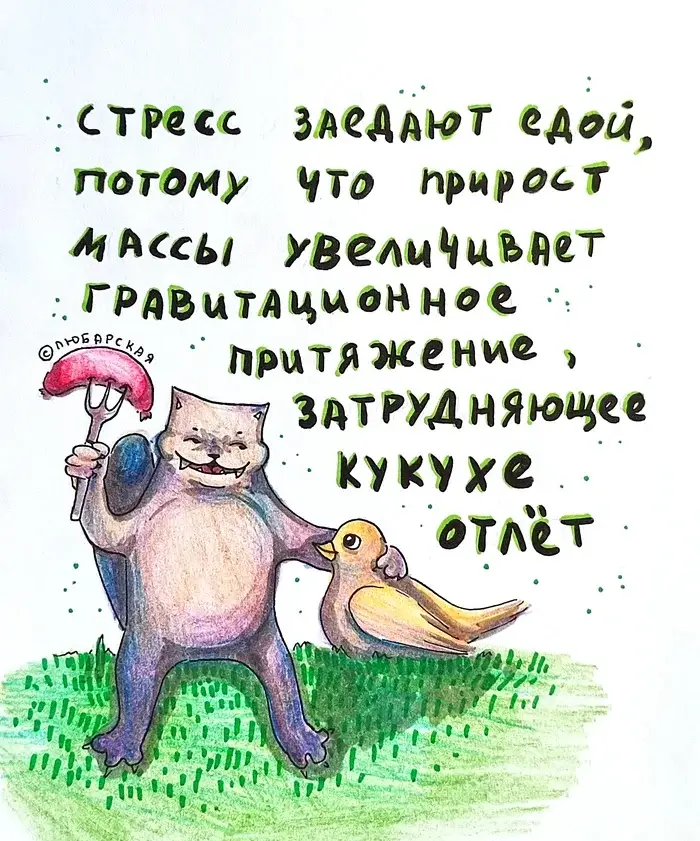 стресс заедают едой,
потому что прирост
массы увеличивает
гравитационное
© Любарская
притяжение,
затрудняющее
кукухе
отлёт